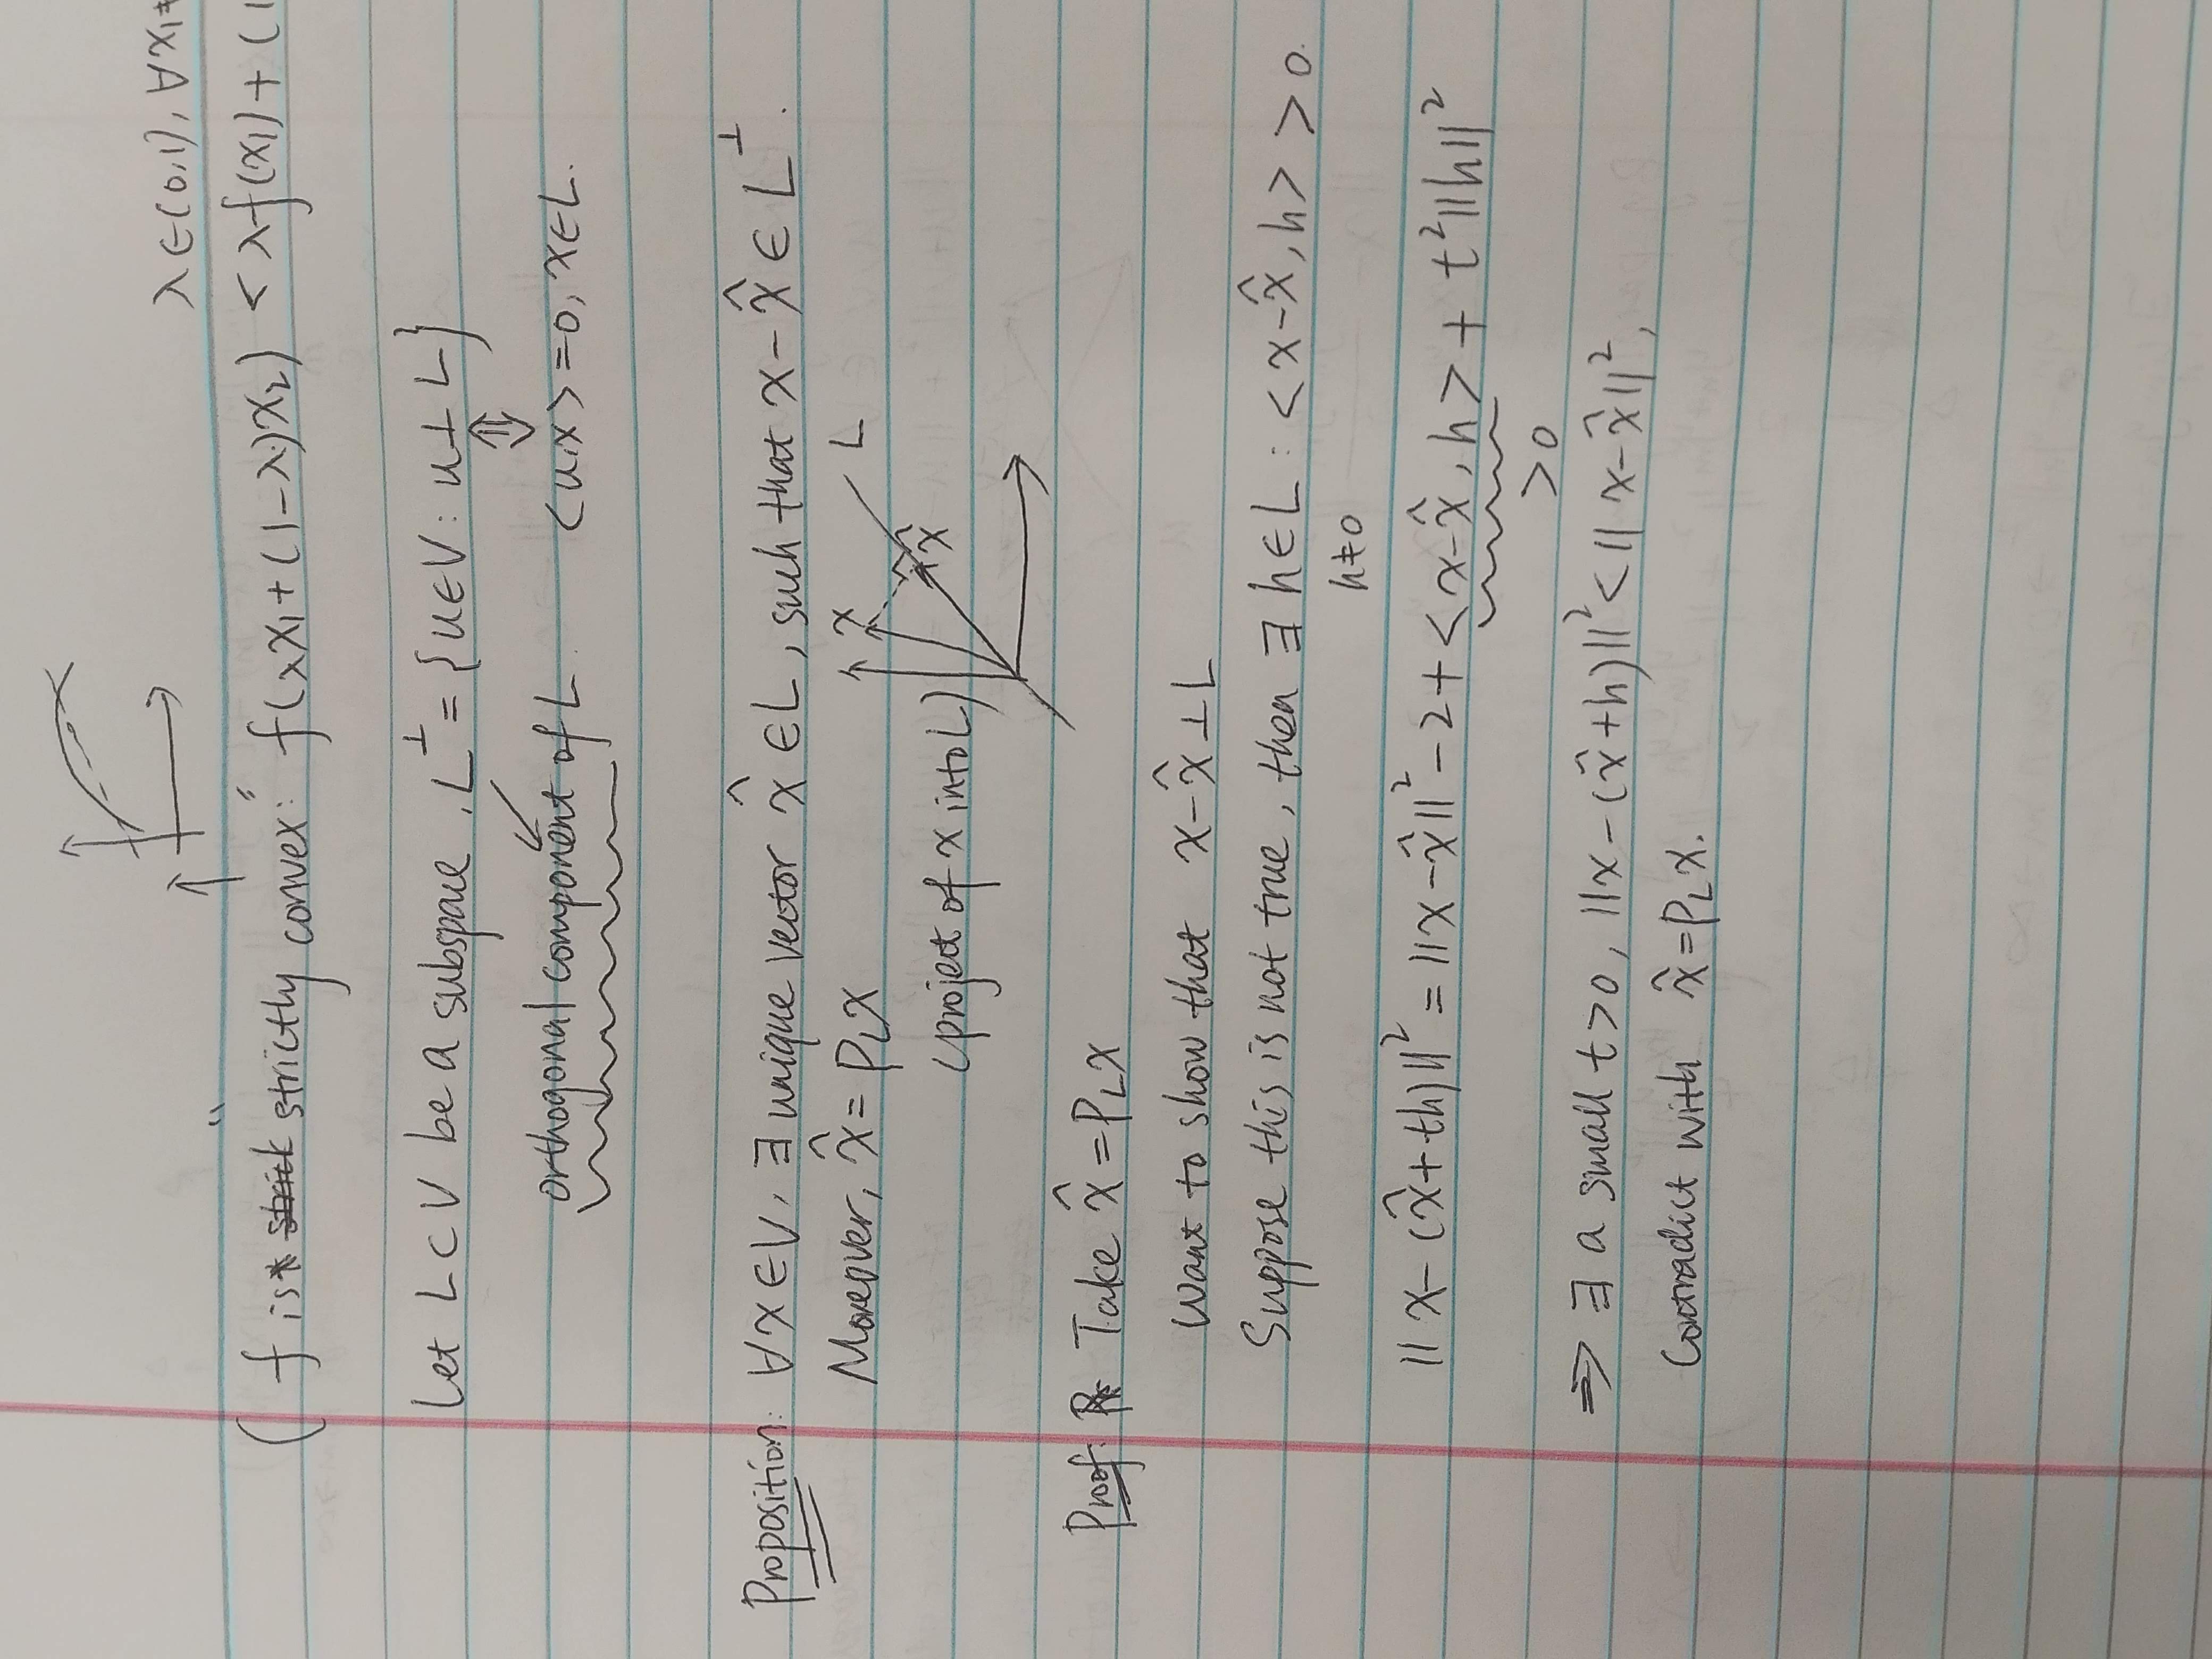 λ∈(0,1), ∀x₁≠
(f is strictly convex: f(λx₁+(1-λ)x₂) < λf(x₁)+(1
Let L⊂V be a subspace, L^⊥ = {u∈V: u⊥L}
⇕
orthogonal component of L. <u,x>=0, x∈L.
Proposition: ∀x∈V, ∃ unique vector x̂∈L, such that x-x̂∈L^⊥.
Moreover, x̂=P_Lx
x L
(project of x into L) x̂
Proof: Take x̂=P_Lx
Want to show that x-x̂⊥L
Suppose this is not true, then ∃ h∈L: <x-x̂,h> >0.
h≠0
||x-(x̂+th)||² = ||x-x̂||² -2t<x-x̂,h> + t²||h||²
>0
⇒ ∃ a small t>0, ||x-(x̂+h)||² < ||x-x̂||²,
Contradict with x̂=P_Lx.